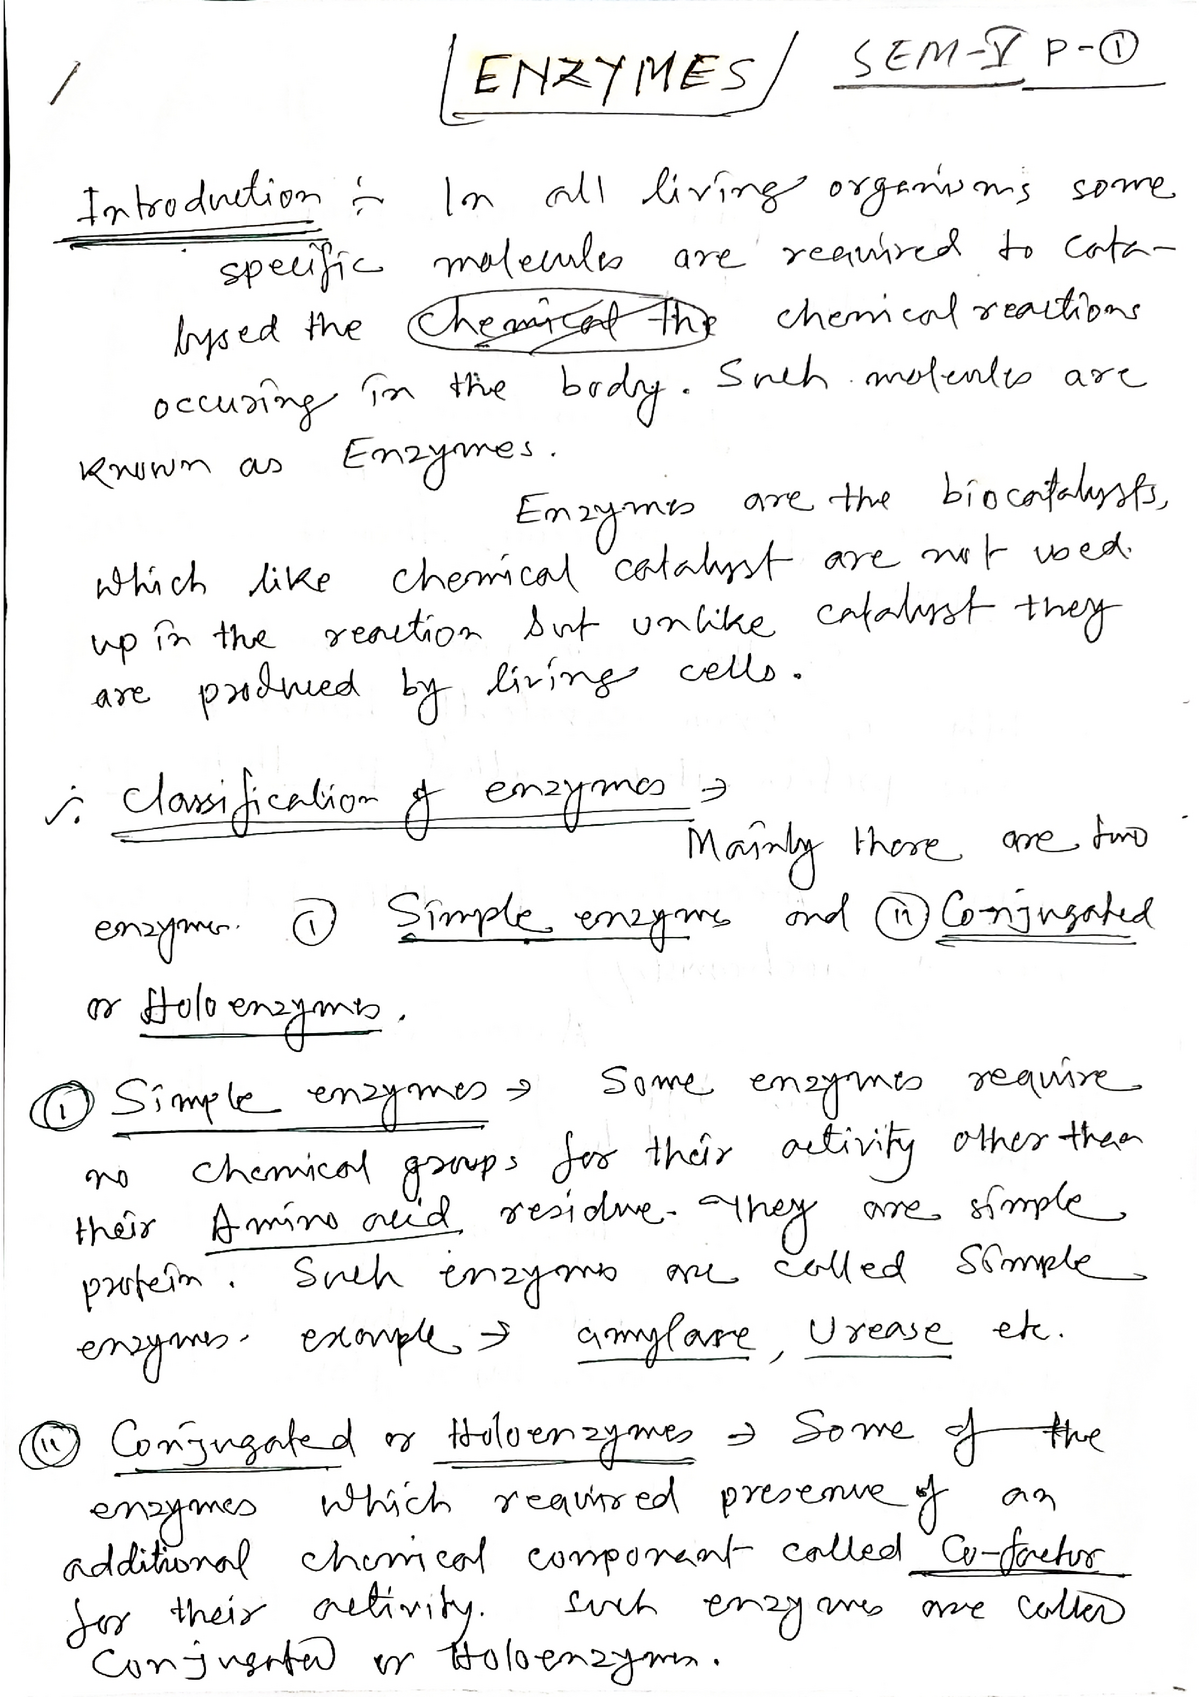 ENZYMES SEM-V P-①
Introduction :- In all living organisms some
specific molecules are required to cata-
lysed the chemical the chemical reactions
occuring in the body. Such molecules are
known as Enzymes.
Enzymes are the biocatalysts,
which like chemical catalyst are not used
up in the reaction but unlike catalyst they
are produced by living cells.
Classification of enzymes →
Mainly there are two
enzymes. ① Simple enzymes and ⑪ Conjugated
or Holoenzymes.
① Simple enzymes → Some enzymes require
no chemical groups for their activity other than
their Amino acid residue. They are simple
protein. Such enzymes are called Simple
enzymes. example → amylase, Urease etc.
⑪ Conjugated or Holoenzymes → Some of the
enzymes which required presence of an
additional chemical component called Co-factor
for their activity. Such enzymes are called
Conjugated or Holoenzymes.